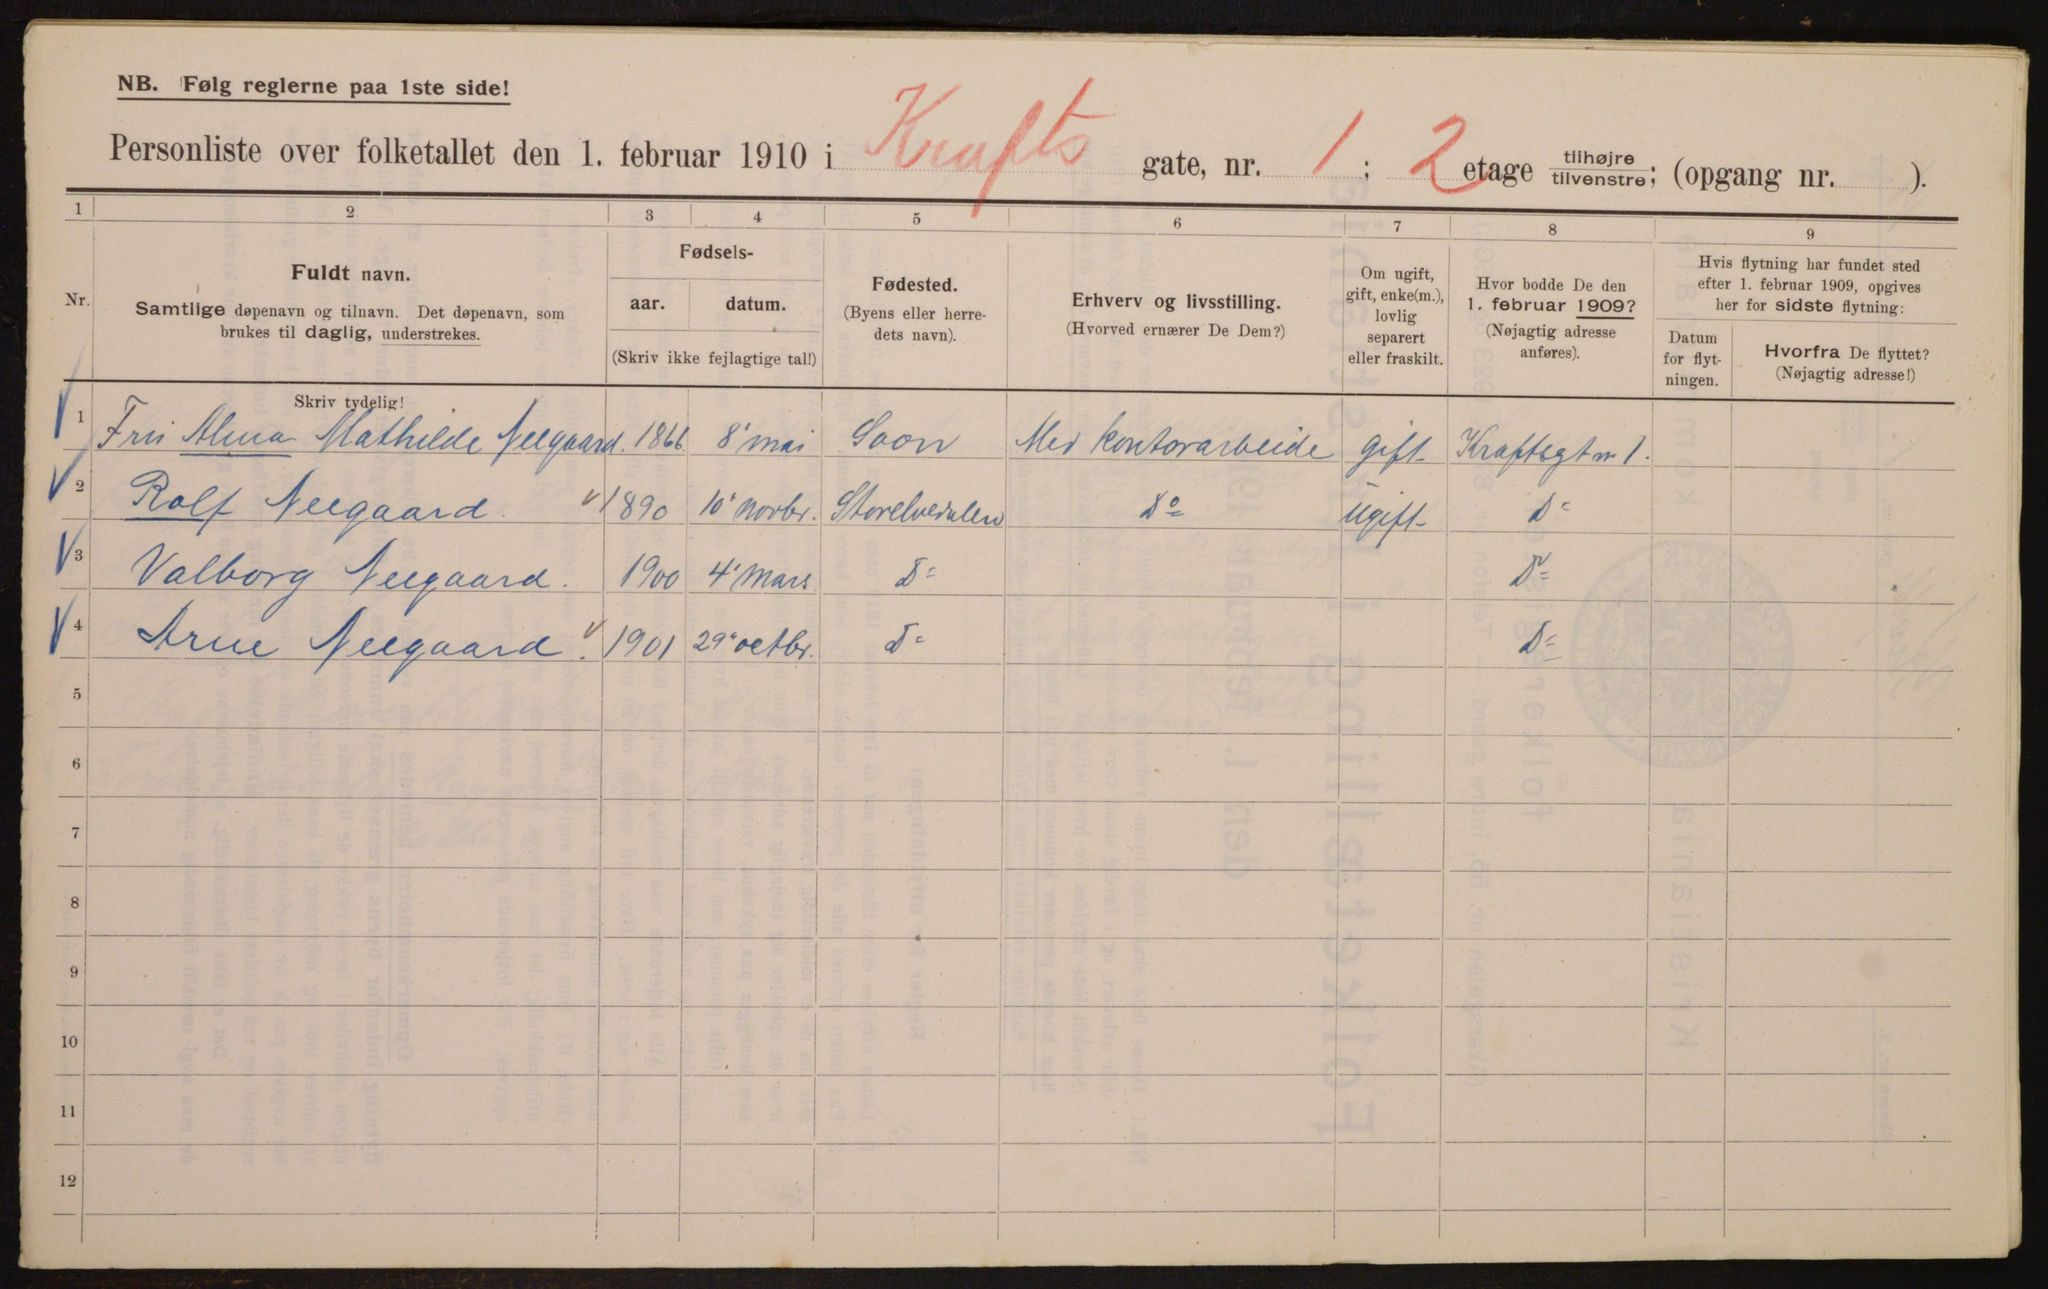 NB. Følg reglerne paa 1ste side!
Personliste over folketallet den 1. februar 1910 i Krafts gate, nr. 1; 2 etage tilhøjre tilvenstre; (opgang nr. ).
1 2 3 4 5 6 7 8 9
Nr.
Fuldt navn.
Samtlige døpenavn og tilnavn. Det døpenavn, som
brukes til daglig, understrekes.
Skriv tydelig!
Fødsels-
aar. datum.
(Skriv ikke fejlagtige tal!)
Fødested.
(Byens eller herre-
dets navn).
Erhverv og livsstilling.
(Hvorved ernærer De Dem?)
Om ugift,
gift, enke(m.),
lovlig
separert
eller fraskilt.
Hvor bodde De den
1. februar 1909?
(Nøjagtig adresse
anføres).
Hvis flytning har fundet sted
efter 1. februar 1909, opgives
her for sidste flytning:
Datum
for flyt-
ningen.
Hvorfra De flyttet?
(Nøjagtig adresse!)
1 Fru Alma Mathilde Neegaard. 1866 8' mai Soon Med kontorarbeide gift Kraftsgt nr 1.
2 Rolf Neegaard. 1890 10' novbr. Storelvedalen Do ugift D=
3 Valborg Neegaard. 1900 4' mars D= D=
4 Arne Neegaard. 1901 29' octbr. D= D=
5
6
7
8
9
10
11
12